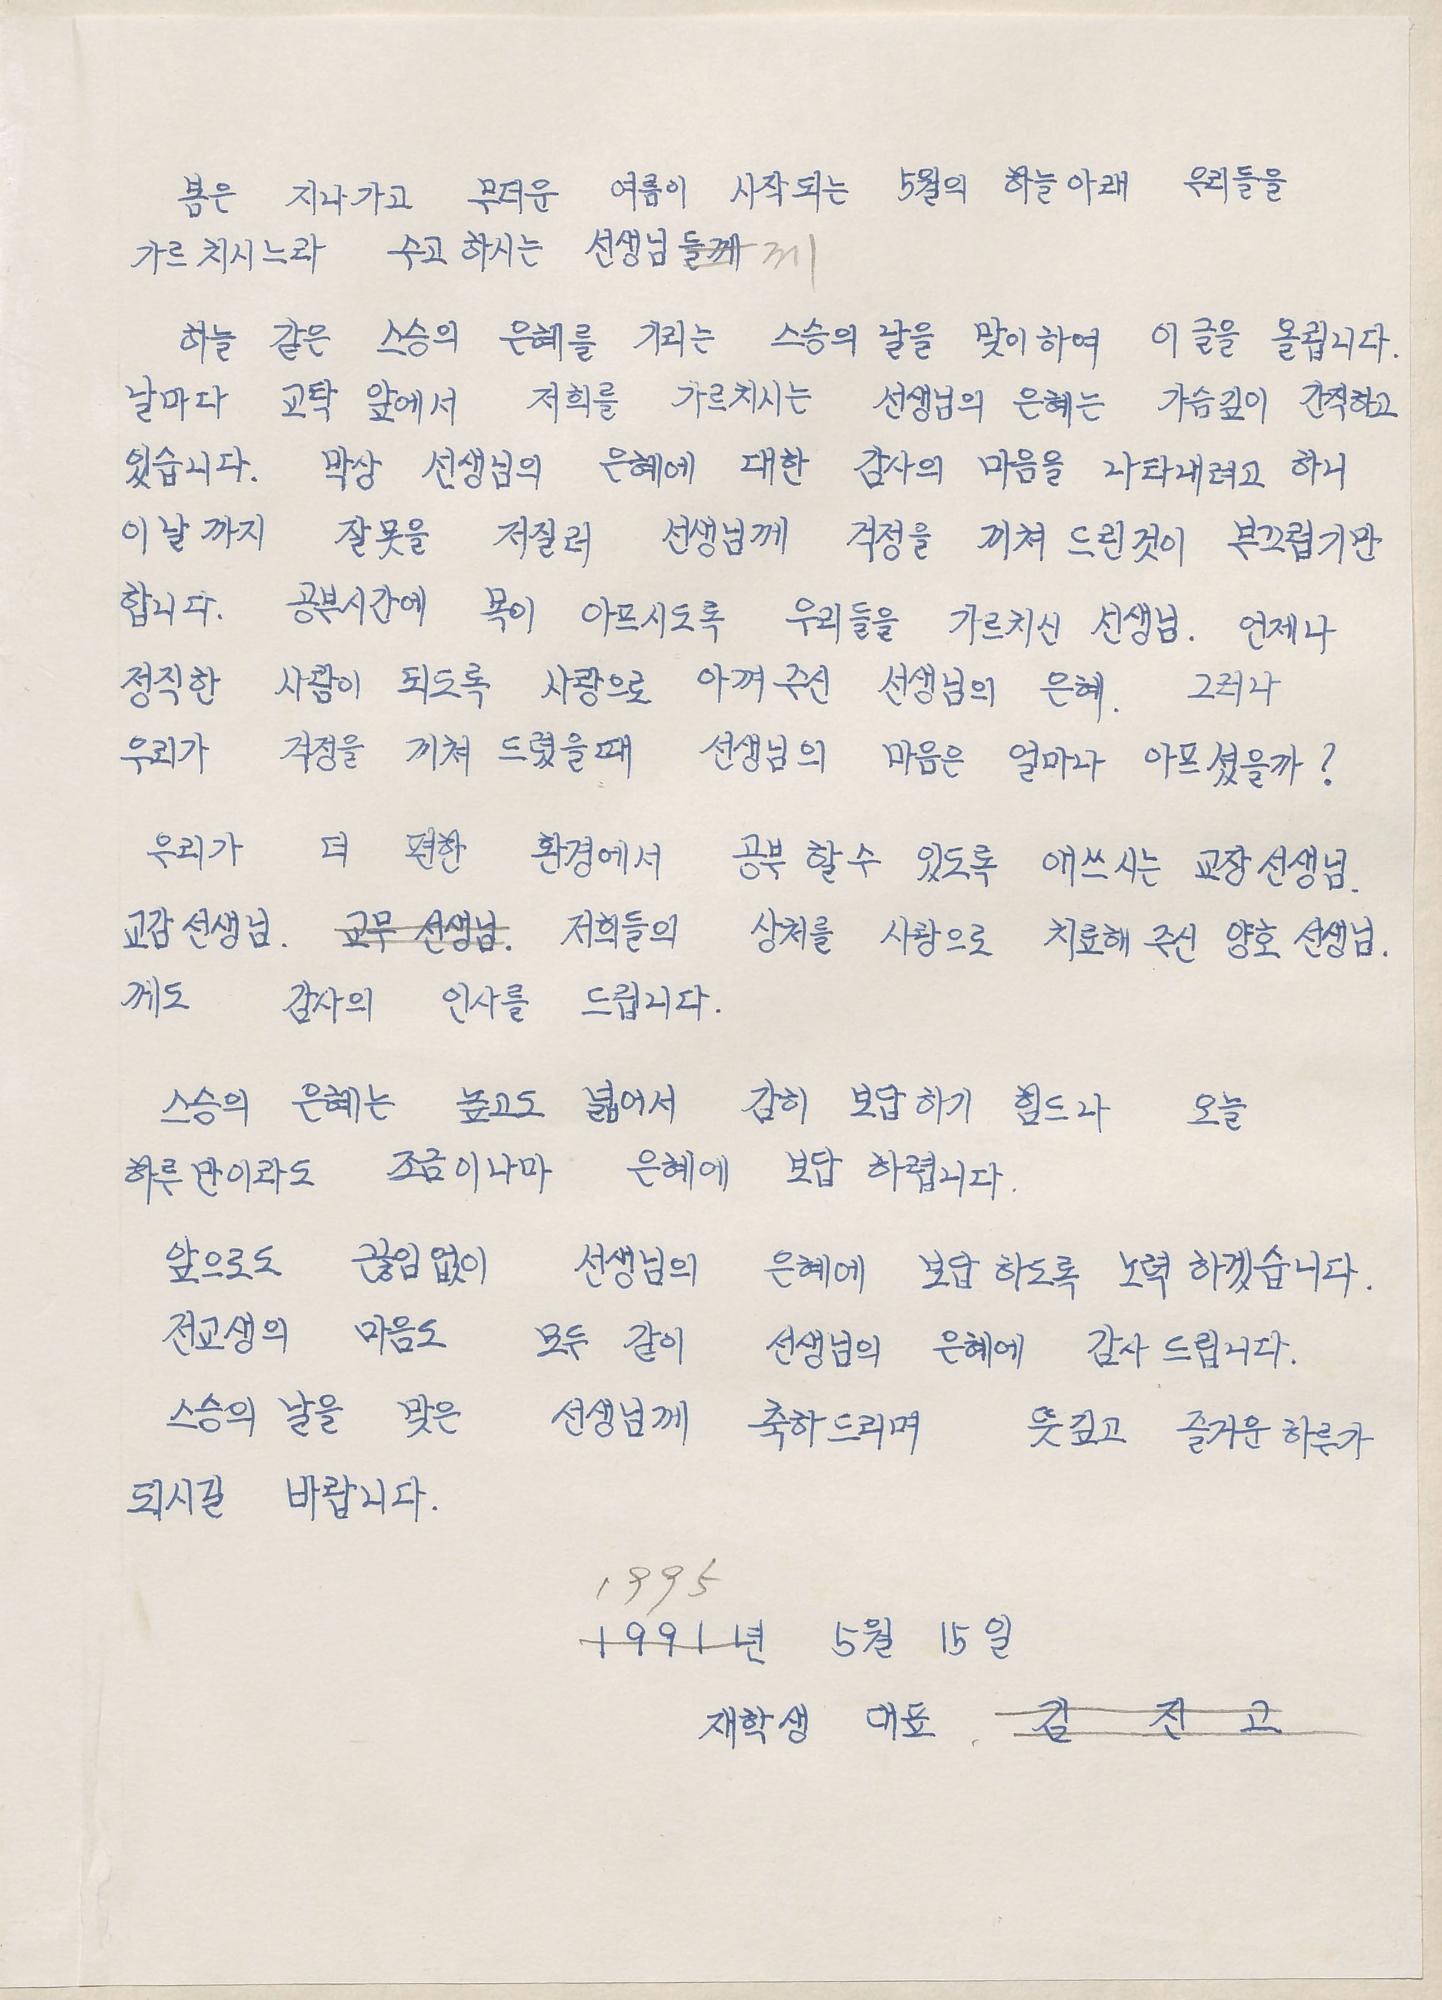 봄은 지나가고 무더운 여름이 시작되는 5월의 하늘아래 우리들을
가르치시느라 수고하시는 선생님들께 께
하늘 같은 스승의 은혜를 기리는 스승의 날을 맞이하여 이 글을 올립니다.
날마다 교탁 앞에서 저희를 가르치시는 선생님의 은혜는 가슴깊이 간직하고
있습니다. 막상 선생님의 은혜에 대한 감사의 마음을 나타내려고 하니
이날까지 잘못을 저질러 선생님께 걱정을 끼쳐 드린것이 부끄럽기만
합니다. 공부시간에 목이 아프시도록 우리들을 가르치신 선생님. 언제나
정직한 사람이 되도록 사랑으로 아껴주신 선생님의 은혜. 그러나
우리가 걱정을 끼쳐 드렸을때 선생님의 마음은 얼마나 아프셨을까?
우리가 더 편한 환경에서 공부 할수 있도록 애쓰시는 교장선생님.
교감선생님. 교무 선생님. 저희들의 상처를 사랑으로 치료해 주신 양호 선생님.
께도 감사의 인사를 드립니다.
스승의 은혜는 높고도 넓어서 감히 보답하기 힘드나 오늘
하루만이라도 조금이나마 은혜에 보답 하렵니다.
앞으로도 끊임없이 선생님의 은혜에 보답 하도록 노력 하겠습니다.
전교생의 마음도 모두 같이 선생님의 은혜에 감사 드립니다.
스승의 날을 맞은 선생님께 축하드리며 뜻깊고 즐거운 하루가
되시길 바랍니다.
1995
1991년 5월 15일
재학생 대표 김 진 고